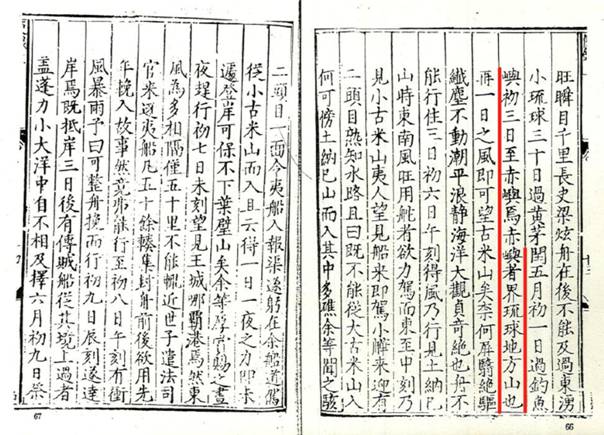 旺瞬目千里長史梁炫舟在後不能及過東湧
小琉球三十日過黃茅閏五月初一日過釣魚
嶼初三日至赤嶼焉赤嶼者界琉球地方山也
再一日之風即可望古米山矣奈何屏翳絕驅
纖塵不動潮平浪静海洋大觀真奇絕也舟不
能行住三日初六日午刻得風乃行見土納已
山時東南風旺用舵者欲力駕而東至申刻乃
見小古米山夷人望見船來即駕小來迎有
二頭目熟知水路且曰既不能從大古米山入
何可傍土納已山而入其中多礁余等聞之駭
66
二頭目一面令夷船入報渠遂躬在余船道駕
從小古米山而入且云得一日一夜之力即未
遽登岸可保不下葉壁山矣余等厚賞賜之晝
夜趕行初七日未刻望見王城那覇港焉然東
風為多相隔僅五十里不能輙近世子遣法司
官來迓夷船凡五十餘轃集封舟前後欲用先
年挽入故事然竟弗能行至初八日午刻有衝
風暴雨予曰可整舟挽而行初九日辰刻遂達
岸焉既抵岸三日後有傳賊船從其境上過者
蓋蓬力小大洋中自不相及擇六月初九日祭
67